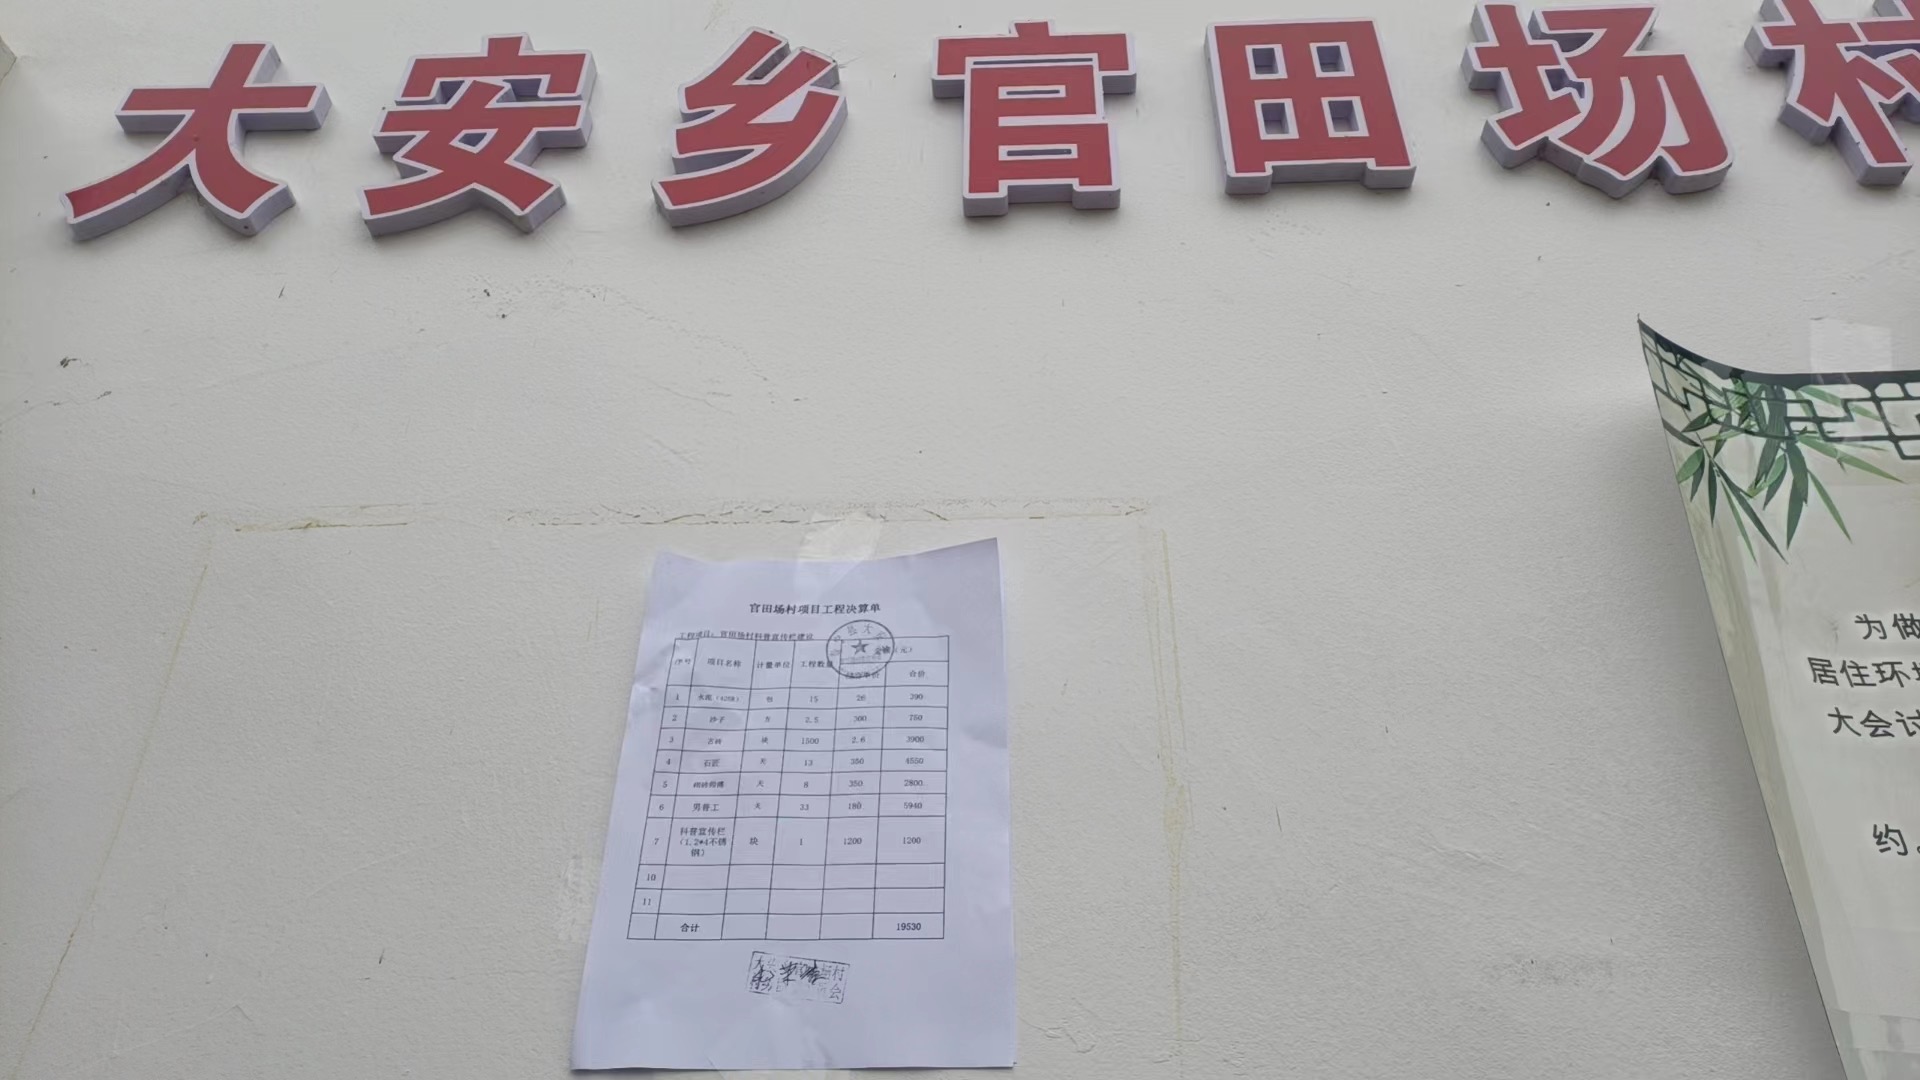 大安乡官田场村
官田场村项目工程决算单
工程项目：官田场村科普宣传栏建设
序号 项目名称 计量单位 工程数量 金额（元）
综合单价 合价
1 水泥（425#） 包 15 26 390
2 沙子 方 2.5 300 750
3 古砖 块 1500 2.6 3900
4 石匠 天 13 350 4550
5 8 350 2800
天
6 男普工 天 33 180 5940
7 科普宣传栏（1.2*4不锈钢） 块 1 1200 1200
10
11
合计 19530
场村
会
为做
居住环境
大会讨
约。